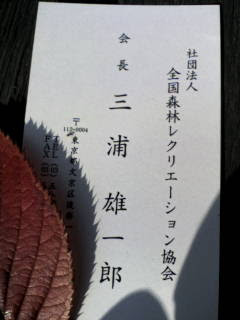 社団法人
全国森林レクリエーション協会
会長
三浦雄一郎
〒
112-0004
東京都文京区後楽一
TEL(03)五
FAX(03)